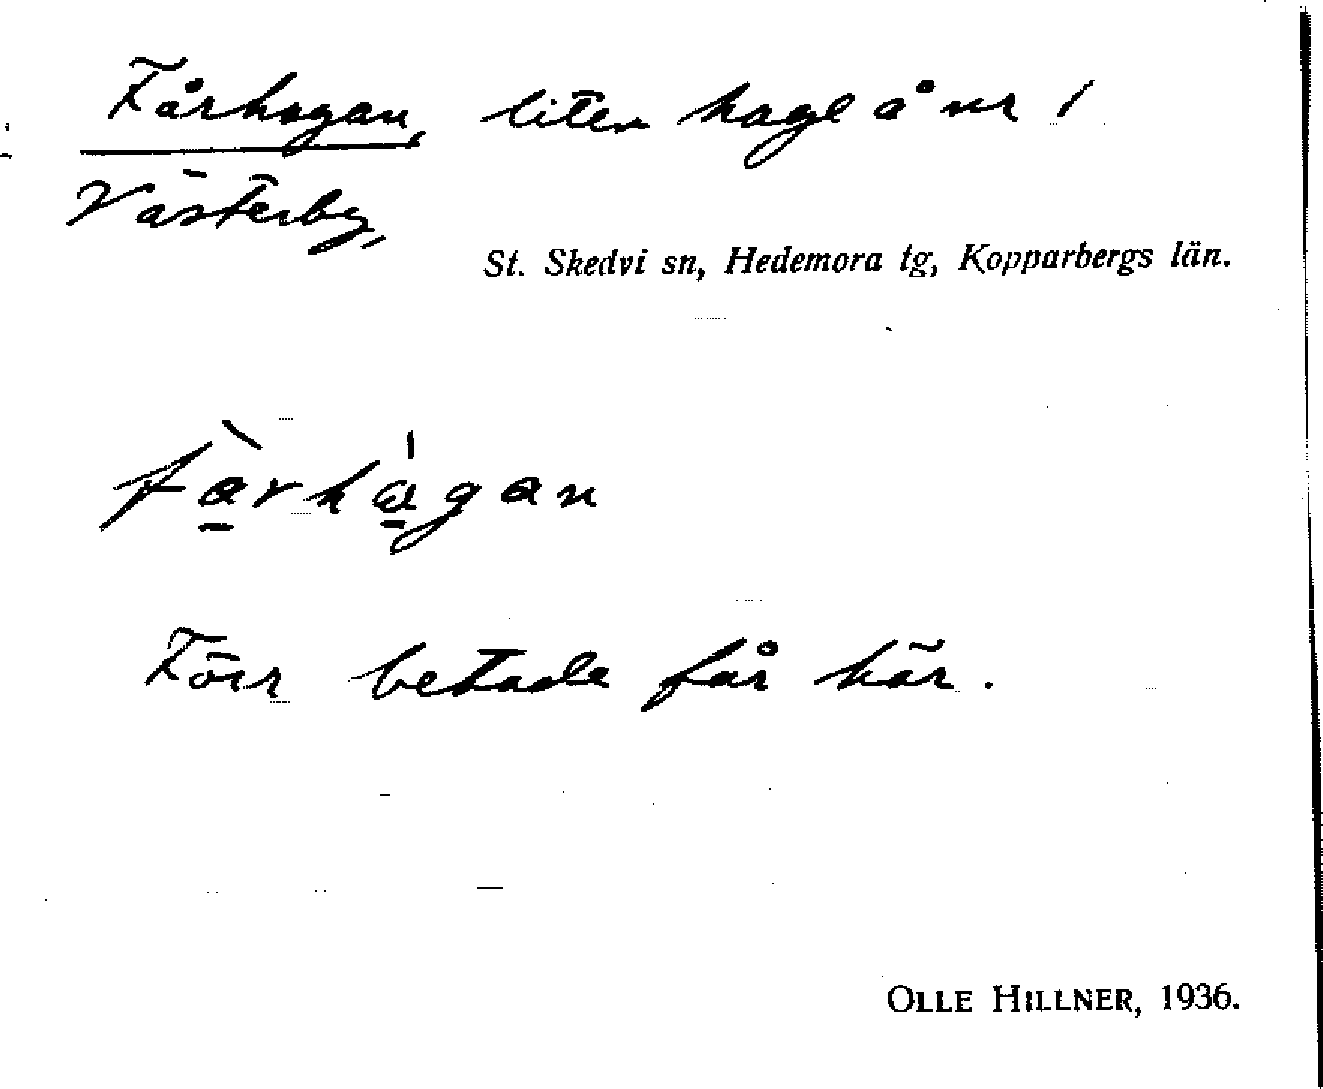 Fårhagan, liten hage å nr 1
Västerby,
St. Skedvi sn, Hedemora tg, Kopparbergs län.
fàrha̍gan
Förr betade får här.
OLLE HILLNER, 1936.